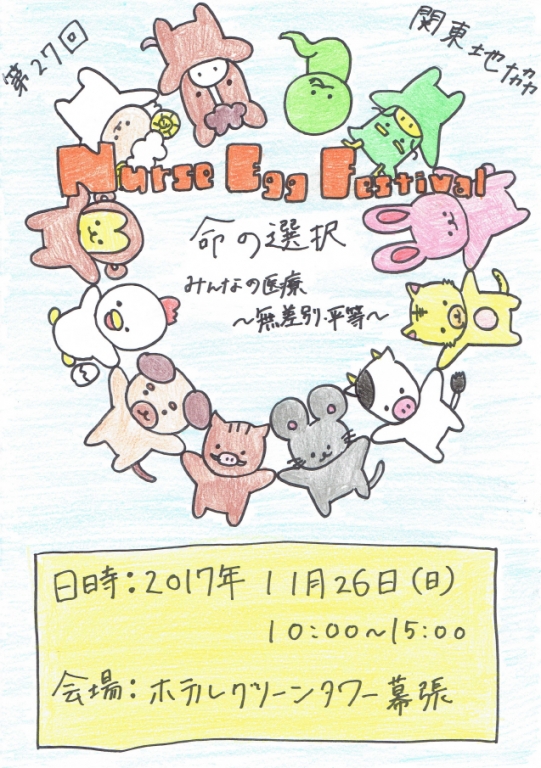 第27回
関東地協
Nurse Egg Festival
命の選択
みんなの医療
～無差別・平等～
日時：2017年 11月26日（日）
10:00～15:00
会場：ホテルグリーンタワー幕張